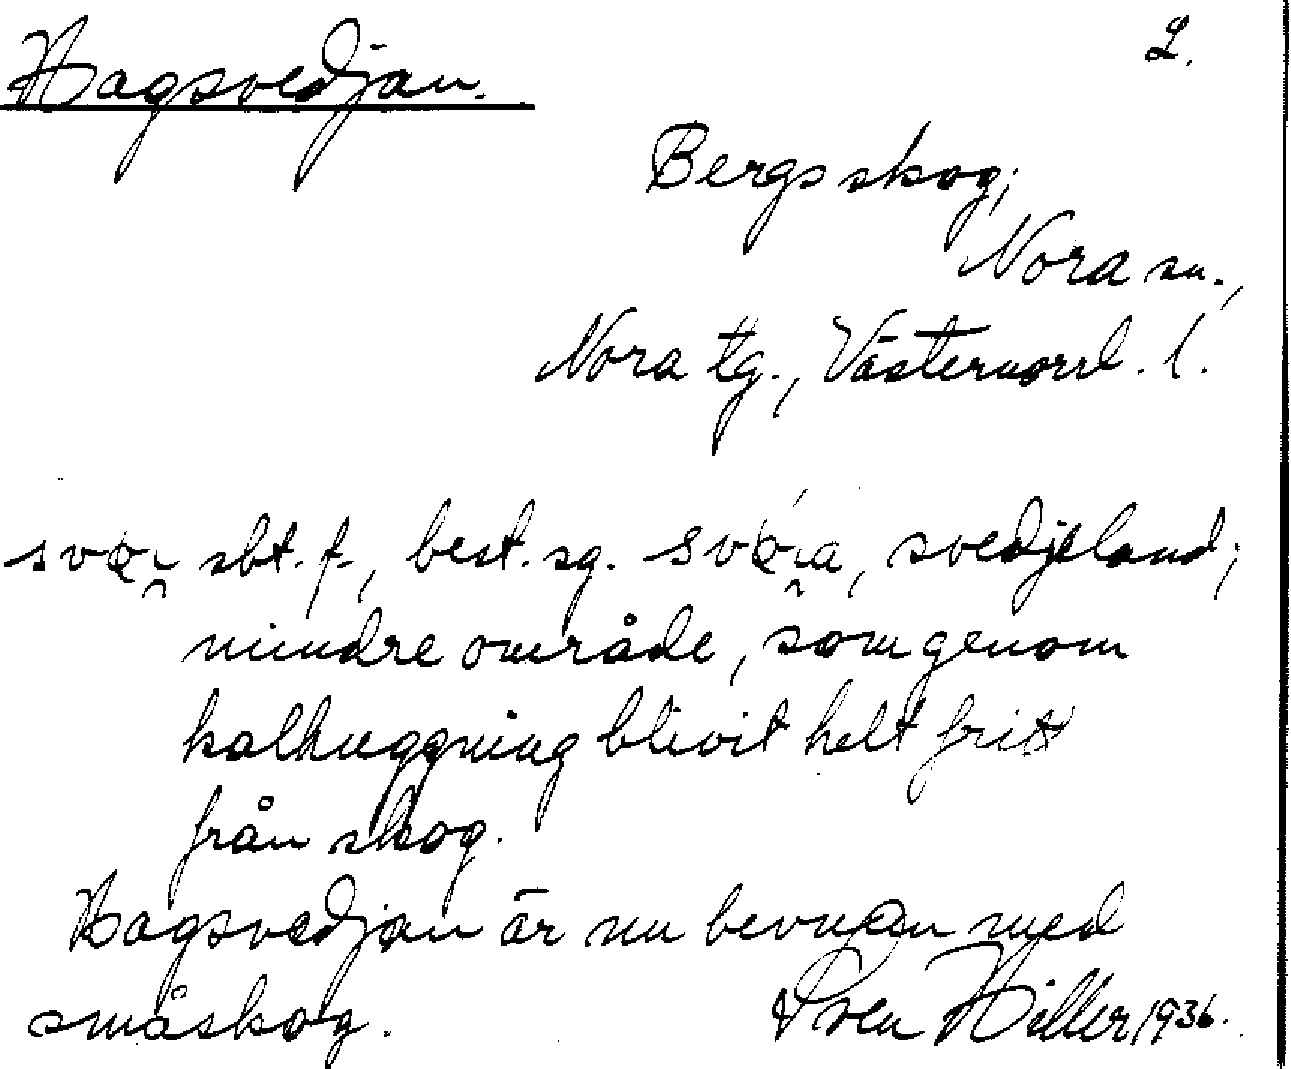 Hagsvedjan.
2.
Bergsskog;
Nora sn.,
Nora tg., Västernorrl. l.
sbt. f., best. sg. svedjeland;
mindre område, som genom
kalhuggning blivit helt fritt
från skog.
Hagsvedjan är nu bevuxen med
småskog.
Sven Hiller 1936.